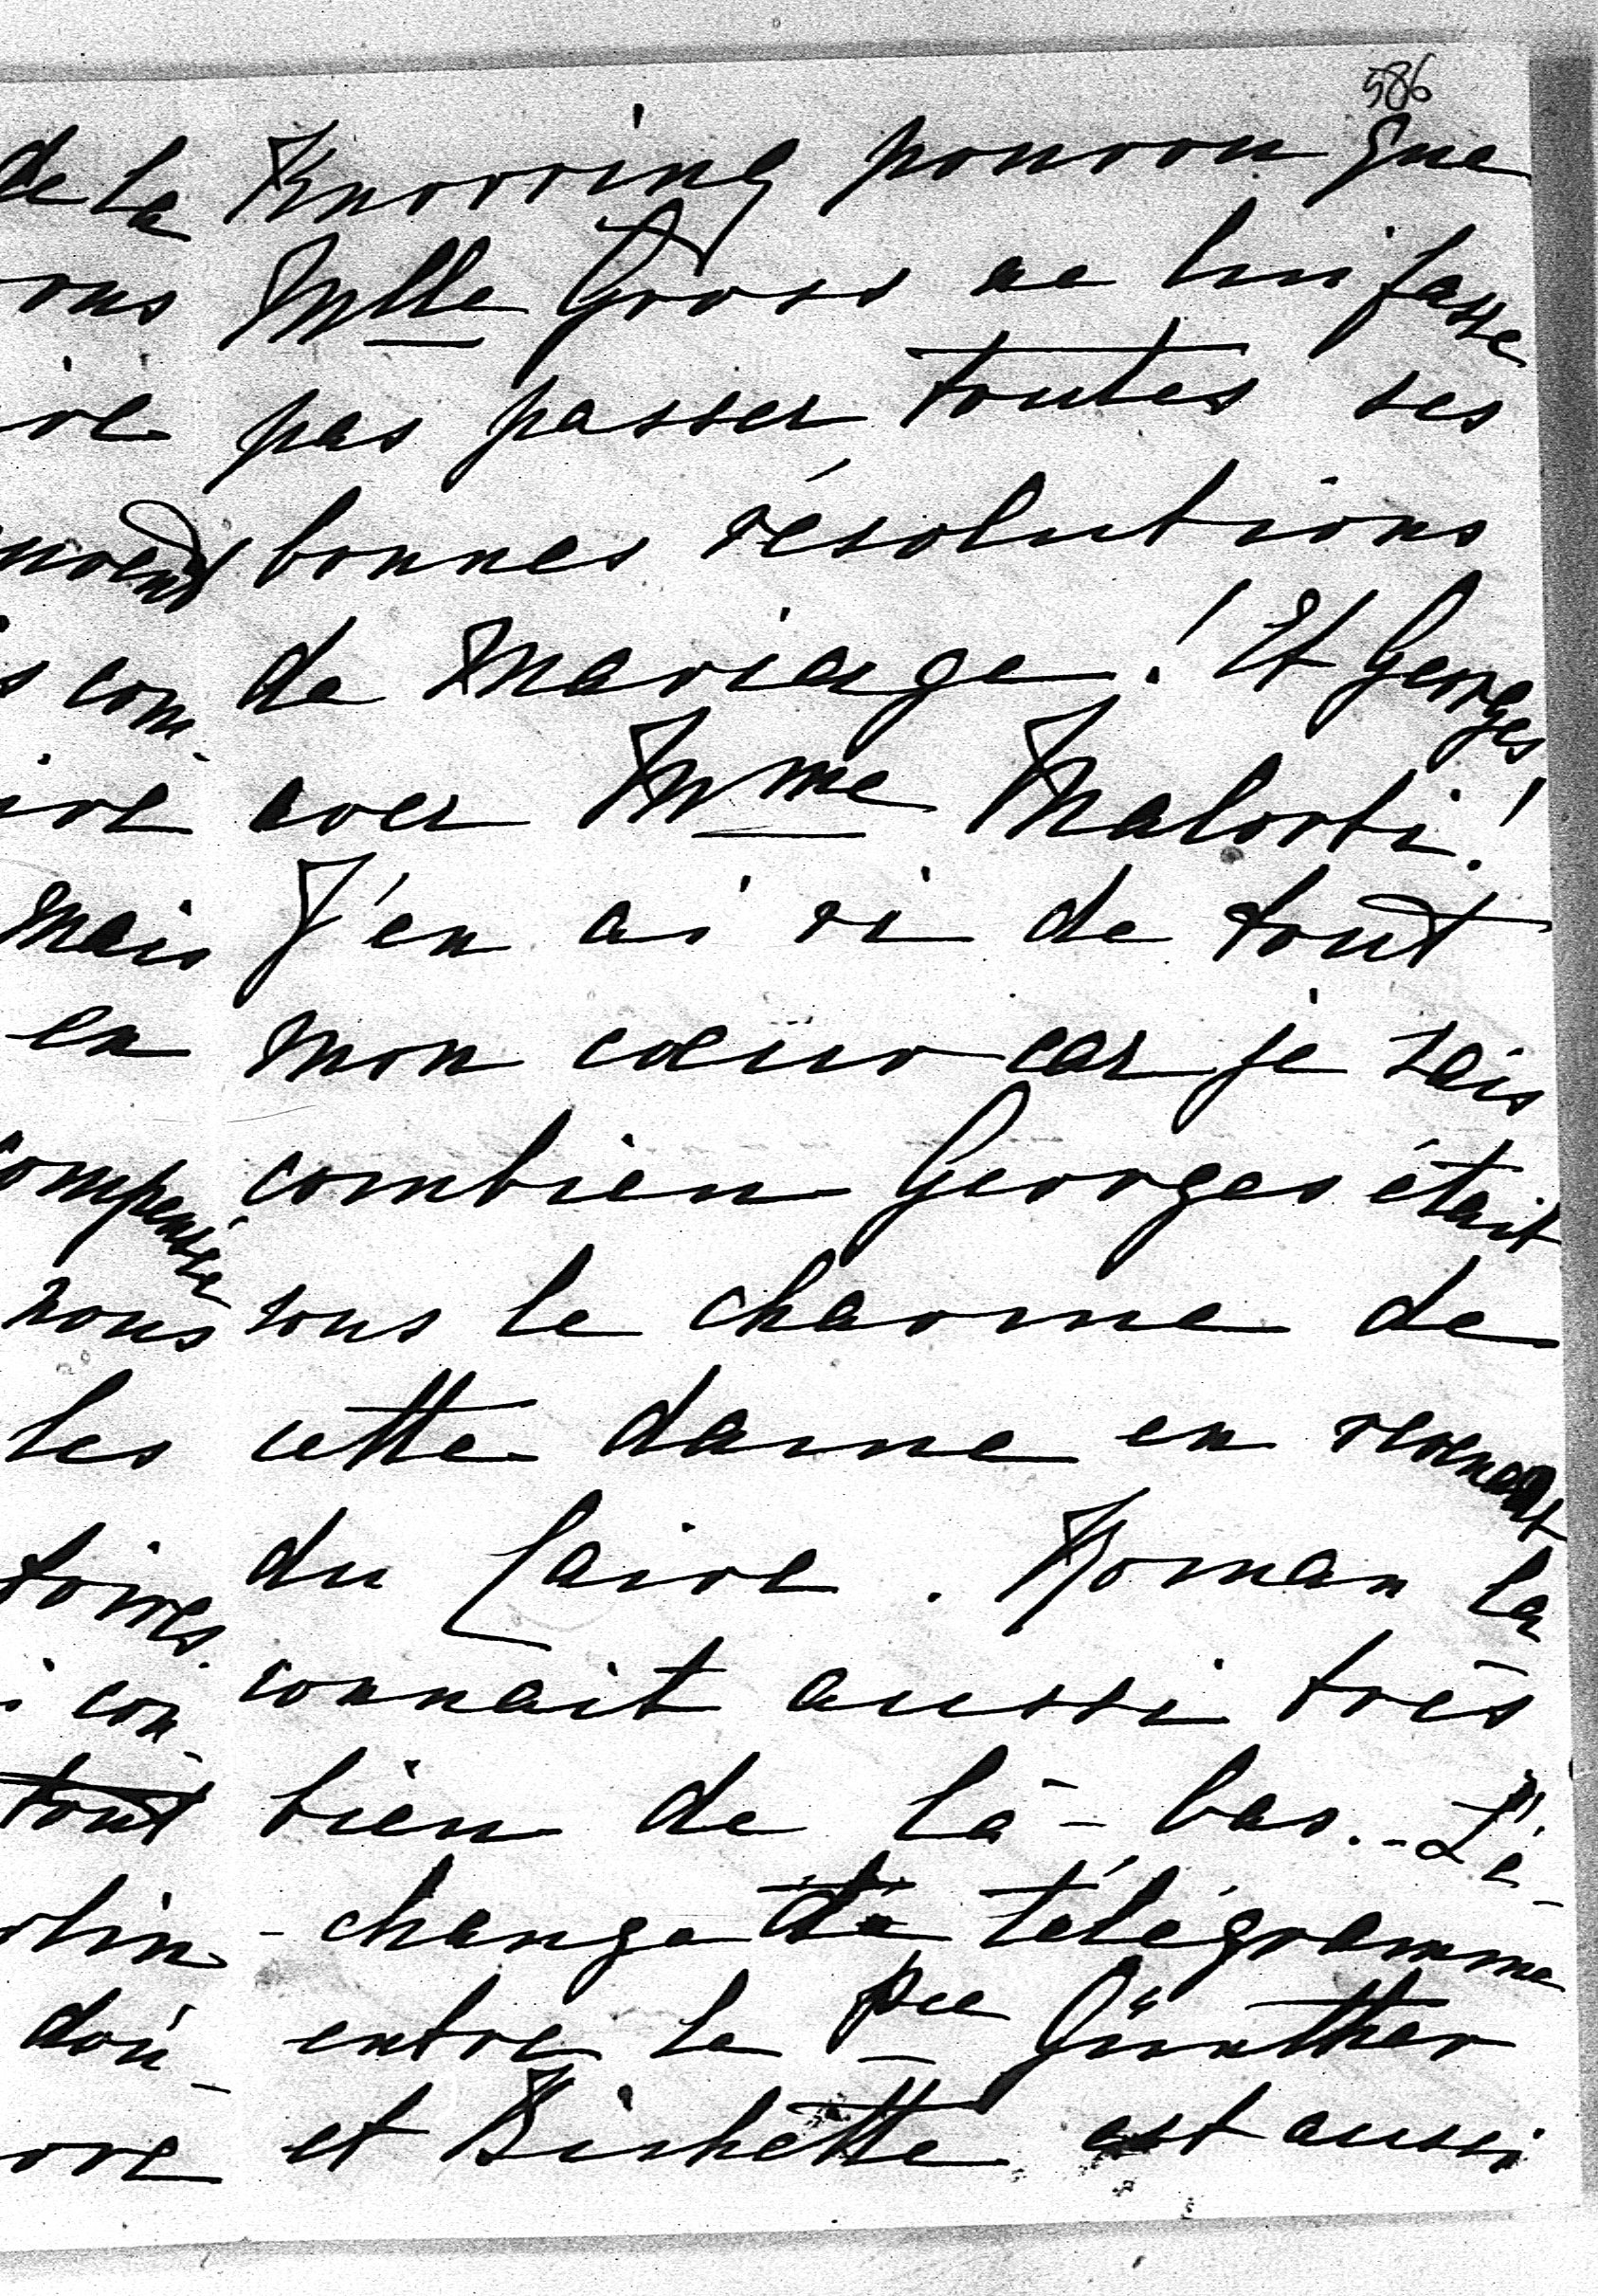 586
Knorring pourvu que
Mlle Gross ne lui fasse
pas passer toutes ses
bonnes résolutions
de mariage! Et Georges
avec Mme Malorti!
J'en ai ri de tout
mon cœur car je sais
combien Georges était
sous le charme de
cette dame en revenant
du Caire. Roman la
connait aussi très
bien de là-bas. - L'é-
-change de télégramme
entre le Pce Günther
et Bichette est aussi
de la
ous
ire
uvent
s com-
ire
mais
en
compense
nous
les
toires.
i con-
tout
rlin
doù-
ore